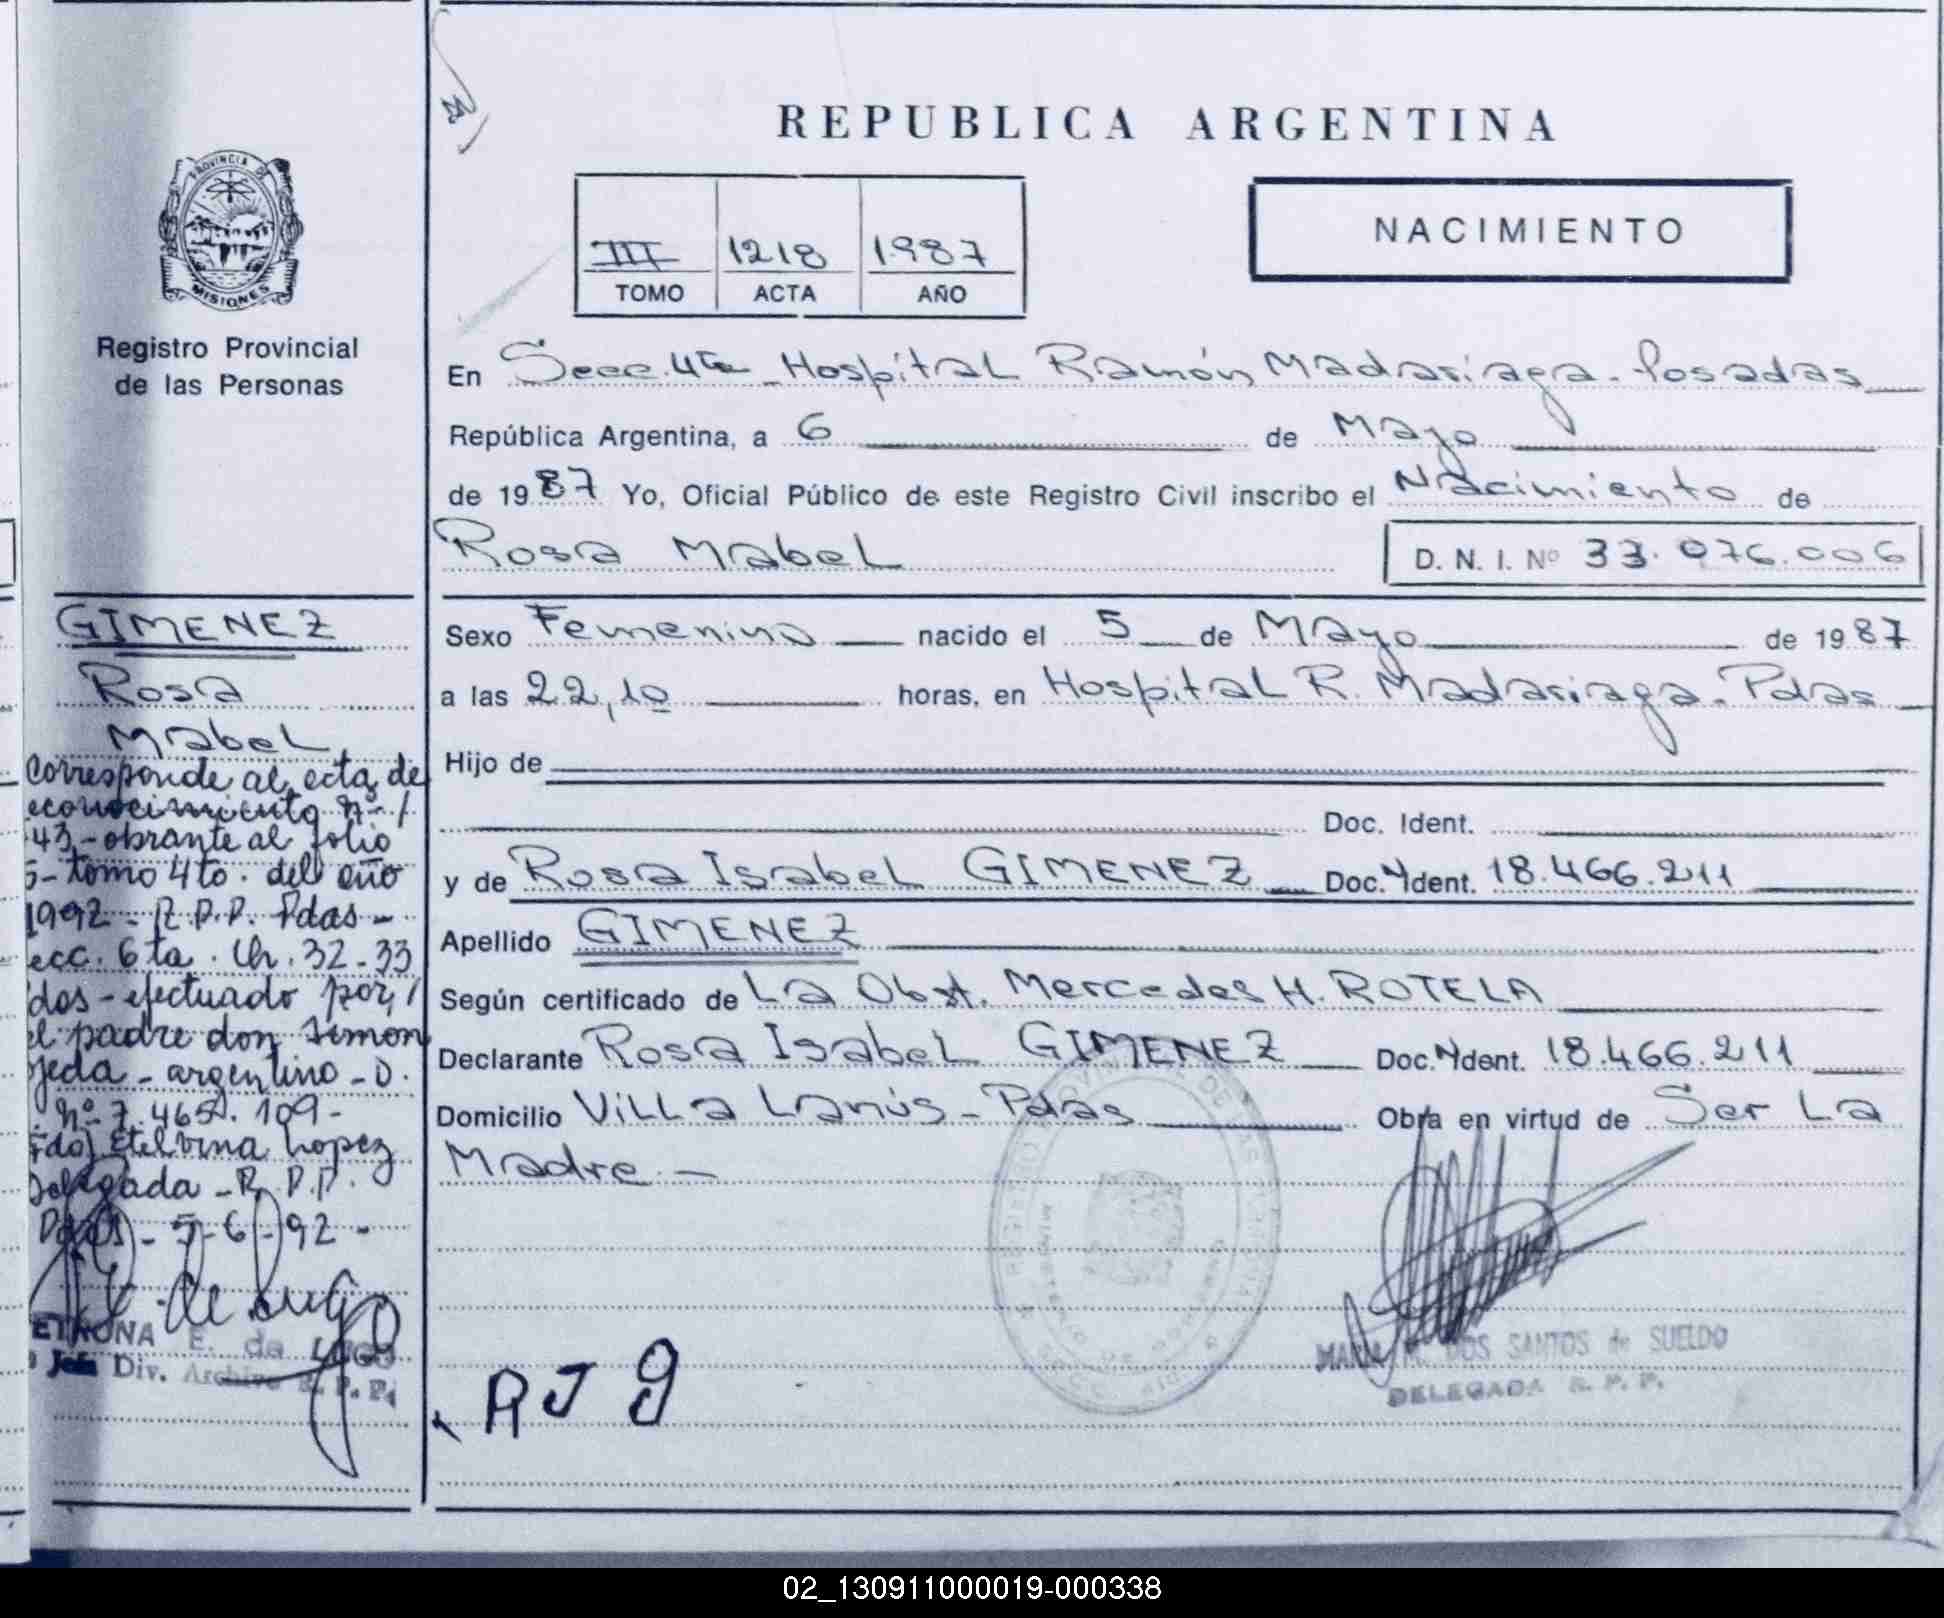 REPUBLICA ARGENTINA
PROVINCIA DE
MISIONES
Registro Provincial
de las Personas
III 1218 1987
TOMO ACTA AÑO
NACIMIENTO
En Secc. 4ta Hospital Ramón Madariaga - Posadas
República Argentina, a 6 de Mayo
de 1987 Yo, Oficial Público de este Registro Civil inscribo el Nacimiento de
Rosa Mabel D. N. I. Nº 33.076.006
Sexo Femenino nacido el 5 de Mayo de 1987
a las 22,10 horas, en Hospital R. Madariaga - Pdas
Hijo de
Doc. Ident.
y de Rosa Isabel GIMENEZ Doc. Ident. 18.466.211
Apellido GIMENEZ
Según certificado de La Obst. Mercedes H. ROTELA
Declarante Rosa Isabel GIMENEZ Doc. Ident. 18.466.211
Domicilio Villa Lanús - Pdas Obra en virtud de Ser La
Madre.-
MARIA DOS SANTOS de SUELDO
DELEGADA R. P. P.
GIMENEZ
Rosa
Mabel
Corresponde al acta de
econocimiento nº /
43 - obrante al folio
5 - tomo 4to. del año
1992 - R.P.P. Pdas -
ecc. 6ta. Ch. 32-33
das - efectuado por /
el padre don Simon
jeda - argentino - D.
. nº 7.465.109 -
Fdo) Etelvina Lopez
Delegada - R.P.P.
Pdas - 5-6-92 -
E. de LUGO
Jefa Div. Archivo R. P. P.
RJ 9
02_130911000019-000338